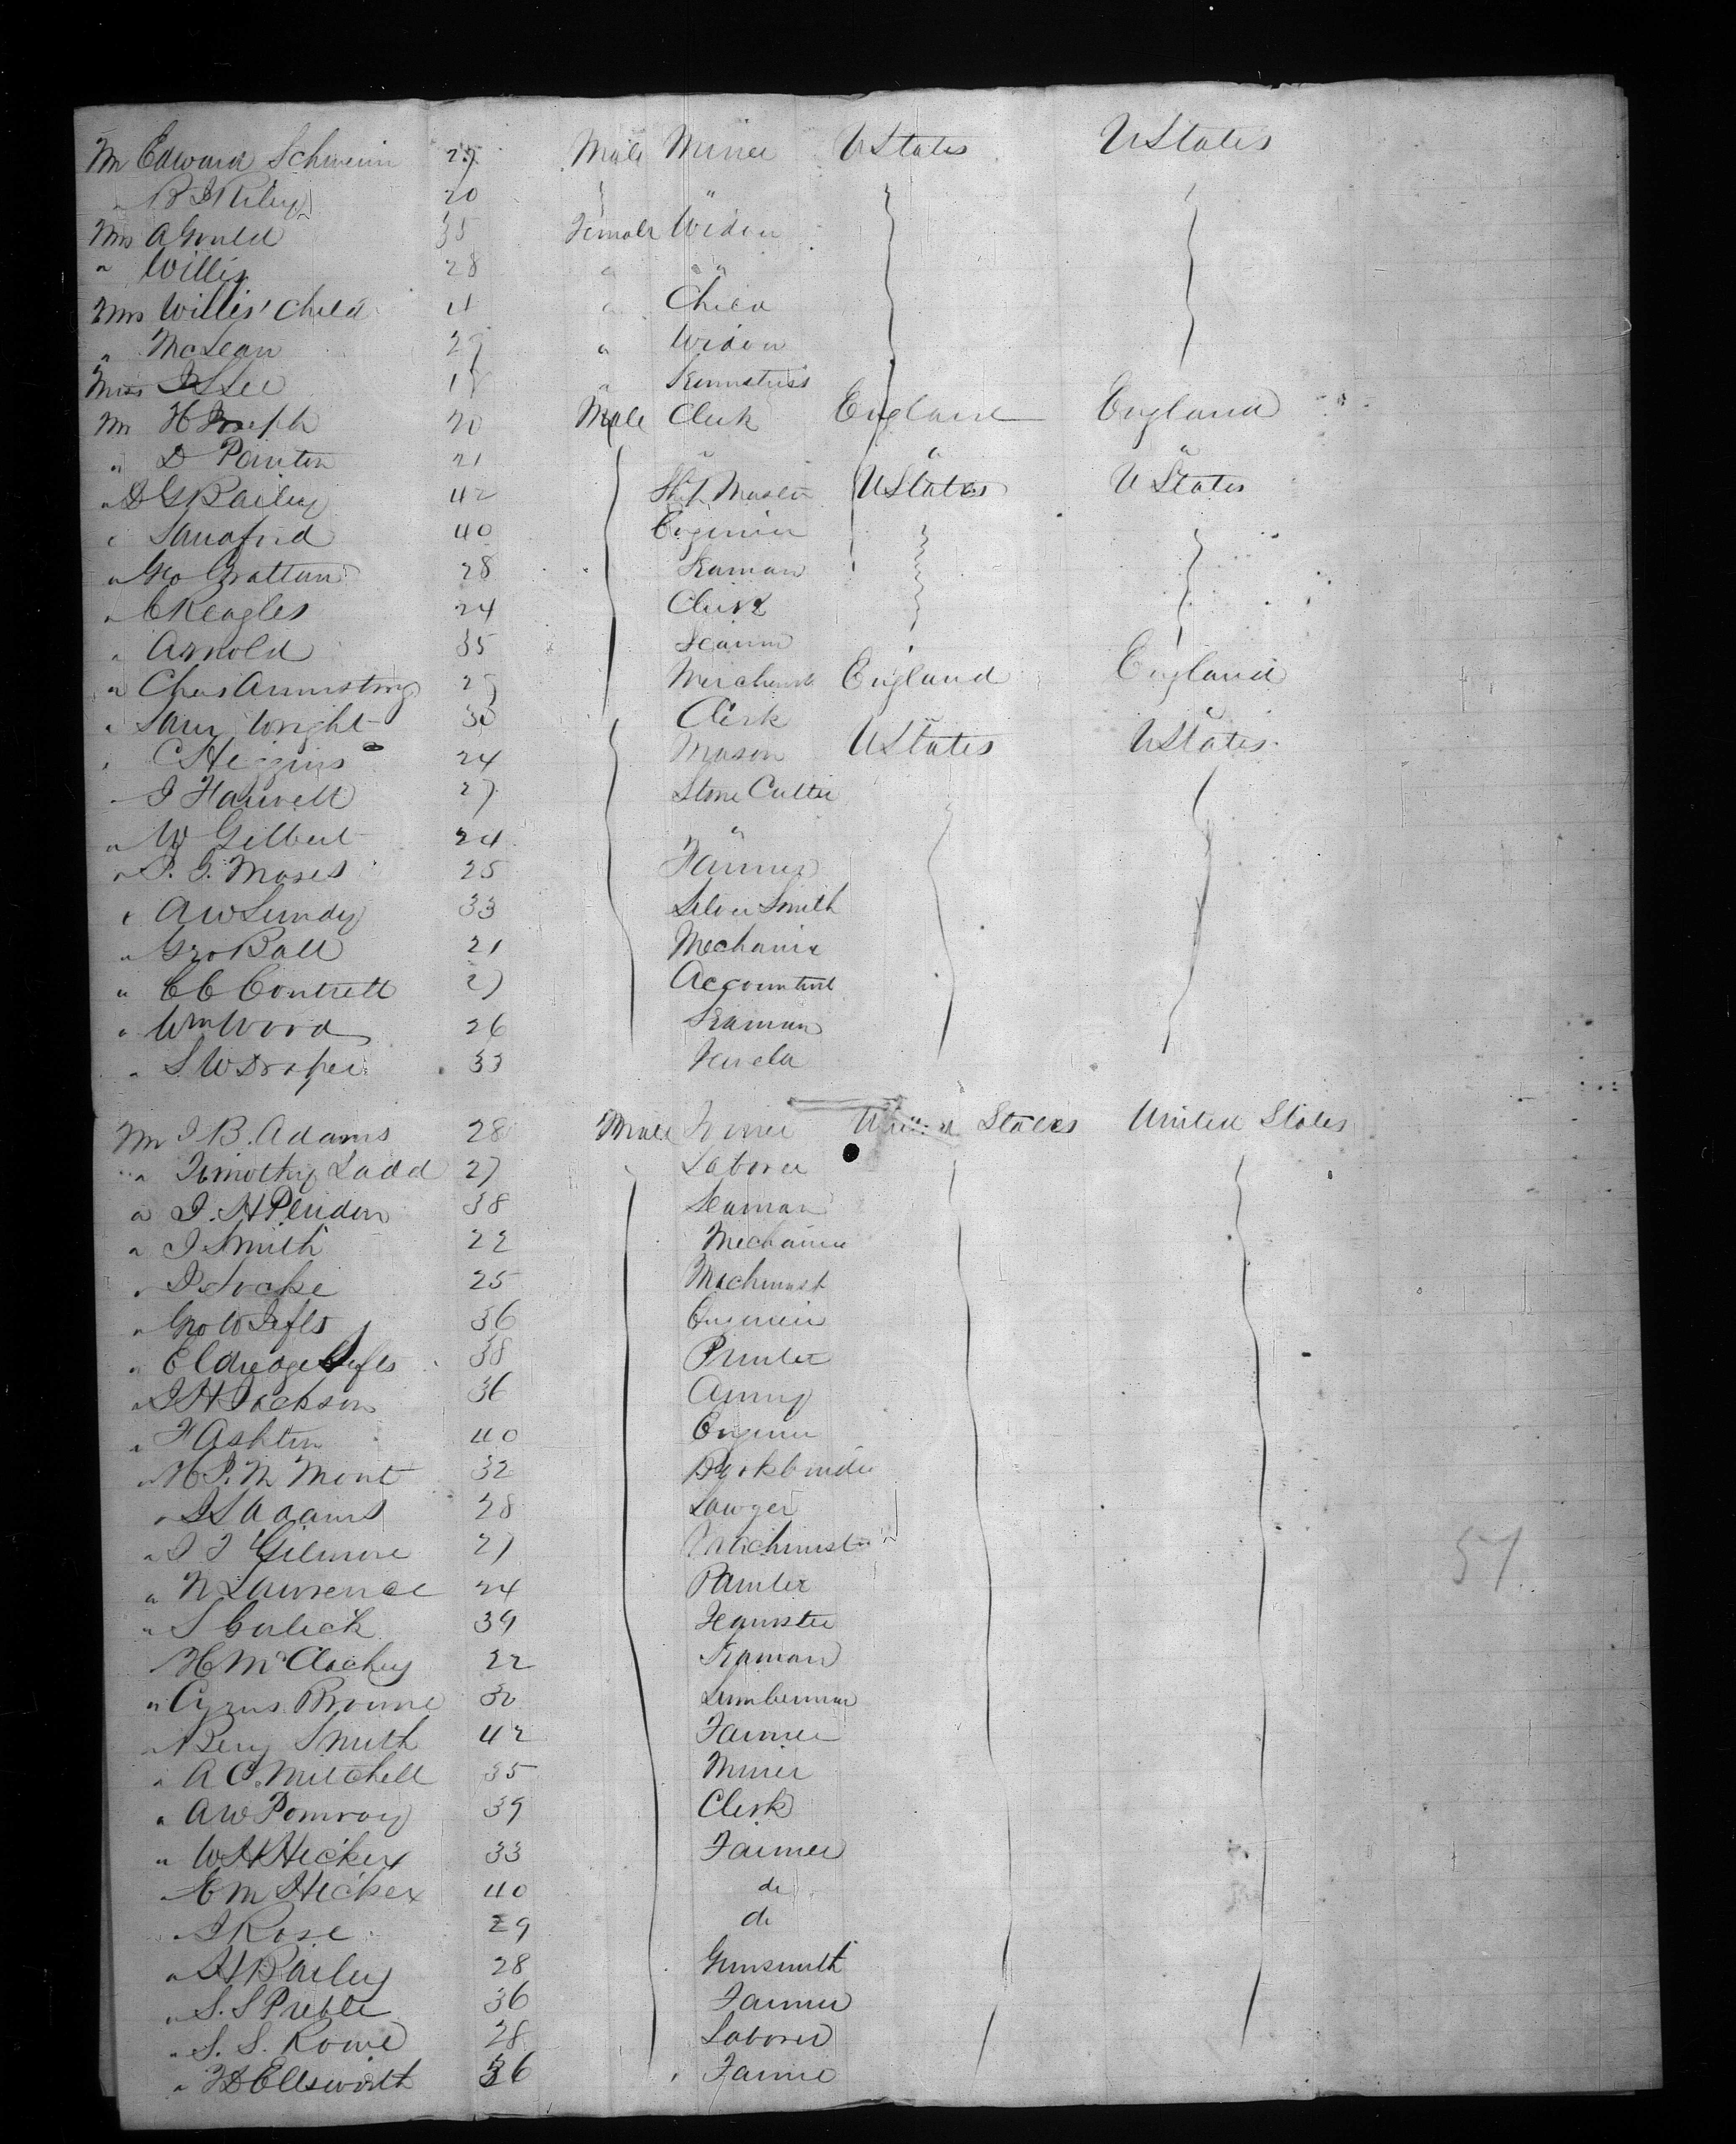 Mr Edward Schwerin 27 Male Miner UStates UStates
" B Riley 20 "
Mrs A Gould 35 Female Widow
" Willis 28 " "
Mrs Willis' Child 11 " Child
" McLean 27 " Widow
Miss Lee "
Mr H Joseph 20 Male Clerk England England
" D Painton 21 " " "
" D G Bailey 42 Ship Master UStates UStates
" Sanaford 40 Engineer
" Geo Grattan 28 Seaman
" C Reagles 24 Clerk
" Arnold 35 Seaman
" Chas Armstrong Merchant England England
" Saml Wright 30 Clerk " "
" C Higgins 24 Mason UStates UStates
" J Harwell 27 Stone Cutter
" W Gilbert 24 "
" P. J. Moses 25 Farmer
" A W Lundy 33 Silver Smith
" Geo Ball 21 Mechanic
" C C Contrell 27 Accountant
" Wm Wood 26 Seaman
" S W Draper 33
Mr J B. Adams 28 Male United States United States
" Timothy Ladd 27 Laborer
" J. H Plendon 38 Seaman
" J Smith 22 Mechanic
" J Locke 25 Machinist
" Geo W Tefts 36 Engineer
" Eldredge Tefts 38 Printer
" J H Jackson 36 Army
" F Ashton 40 Engineer
" 32 Bookbinder
" J S Adams 28 Lawyer
" J T Gilmore 27 Machinist
" N Lawrence 24 Painter
" S Gulick 39 Teamster
H McClachey 22 Seaman
" Cyrus Browne 30 Lumberman
" Benj Smith 42 Farmer
" A C. Mitchell 35 Miner
" A W Pomroy 39 Clerk
" W H Hickex 33 Farmer
" E M Hickex 40 do
" J Rose 29 do
" H Bailey 28 Gunsmith
" S. S Preble 36 Farmer
" S. S. Rowe 28 Laborer
" F D Ellsworth 36 Farme
57